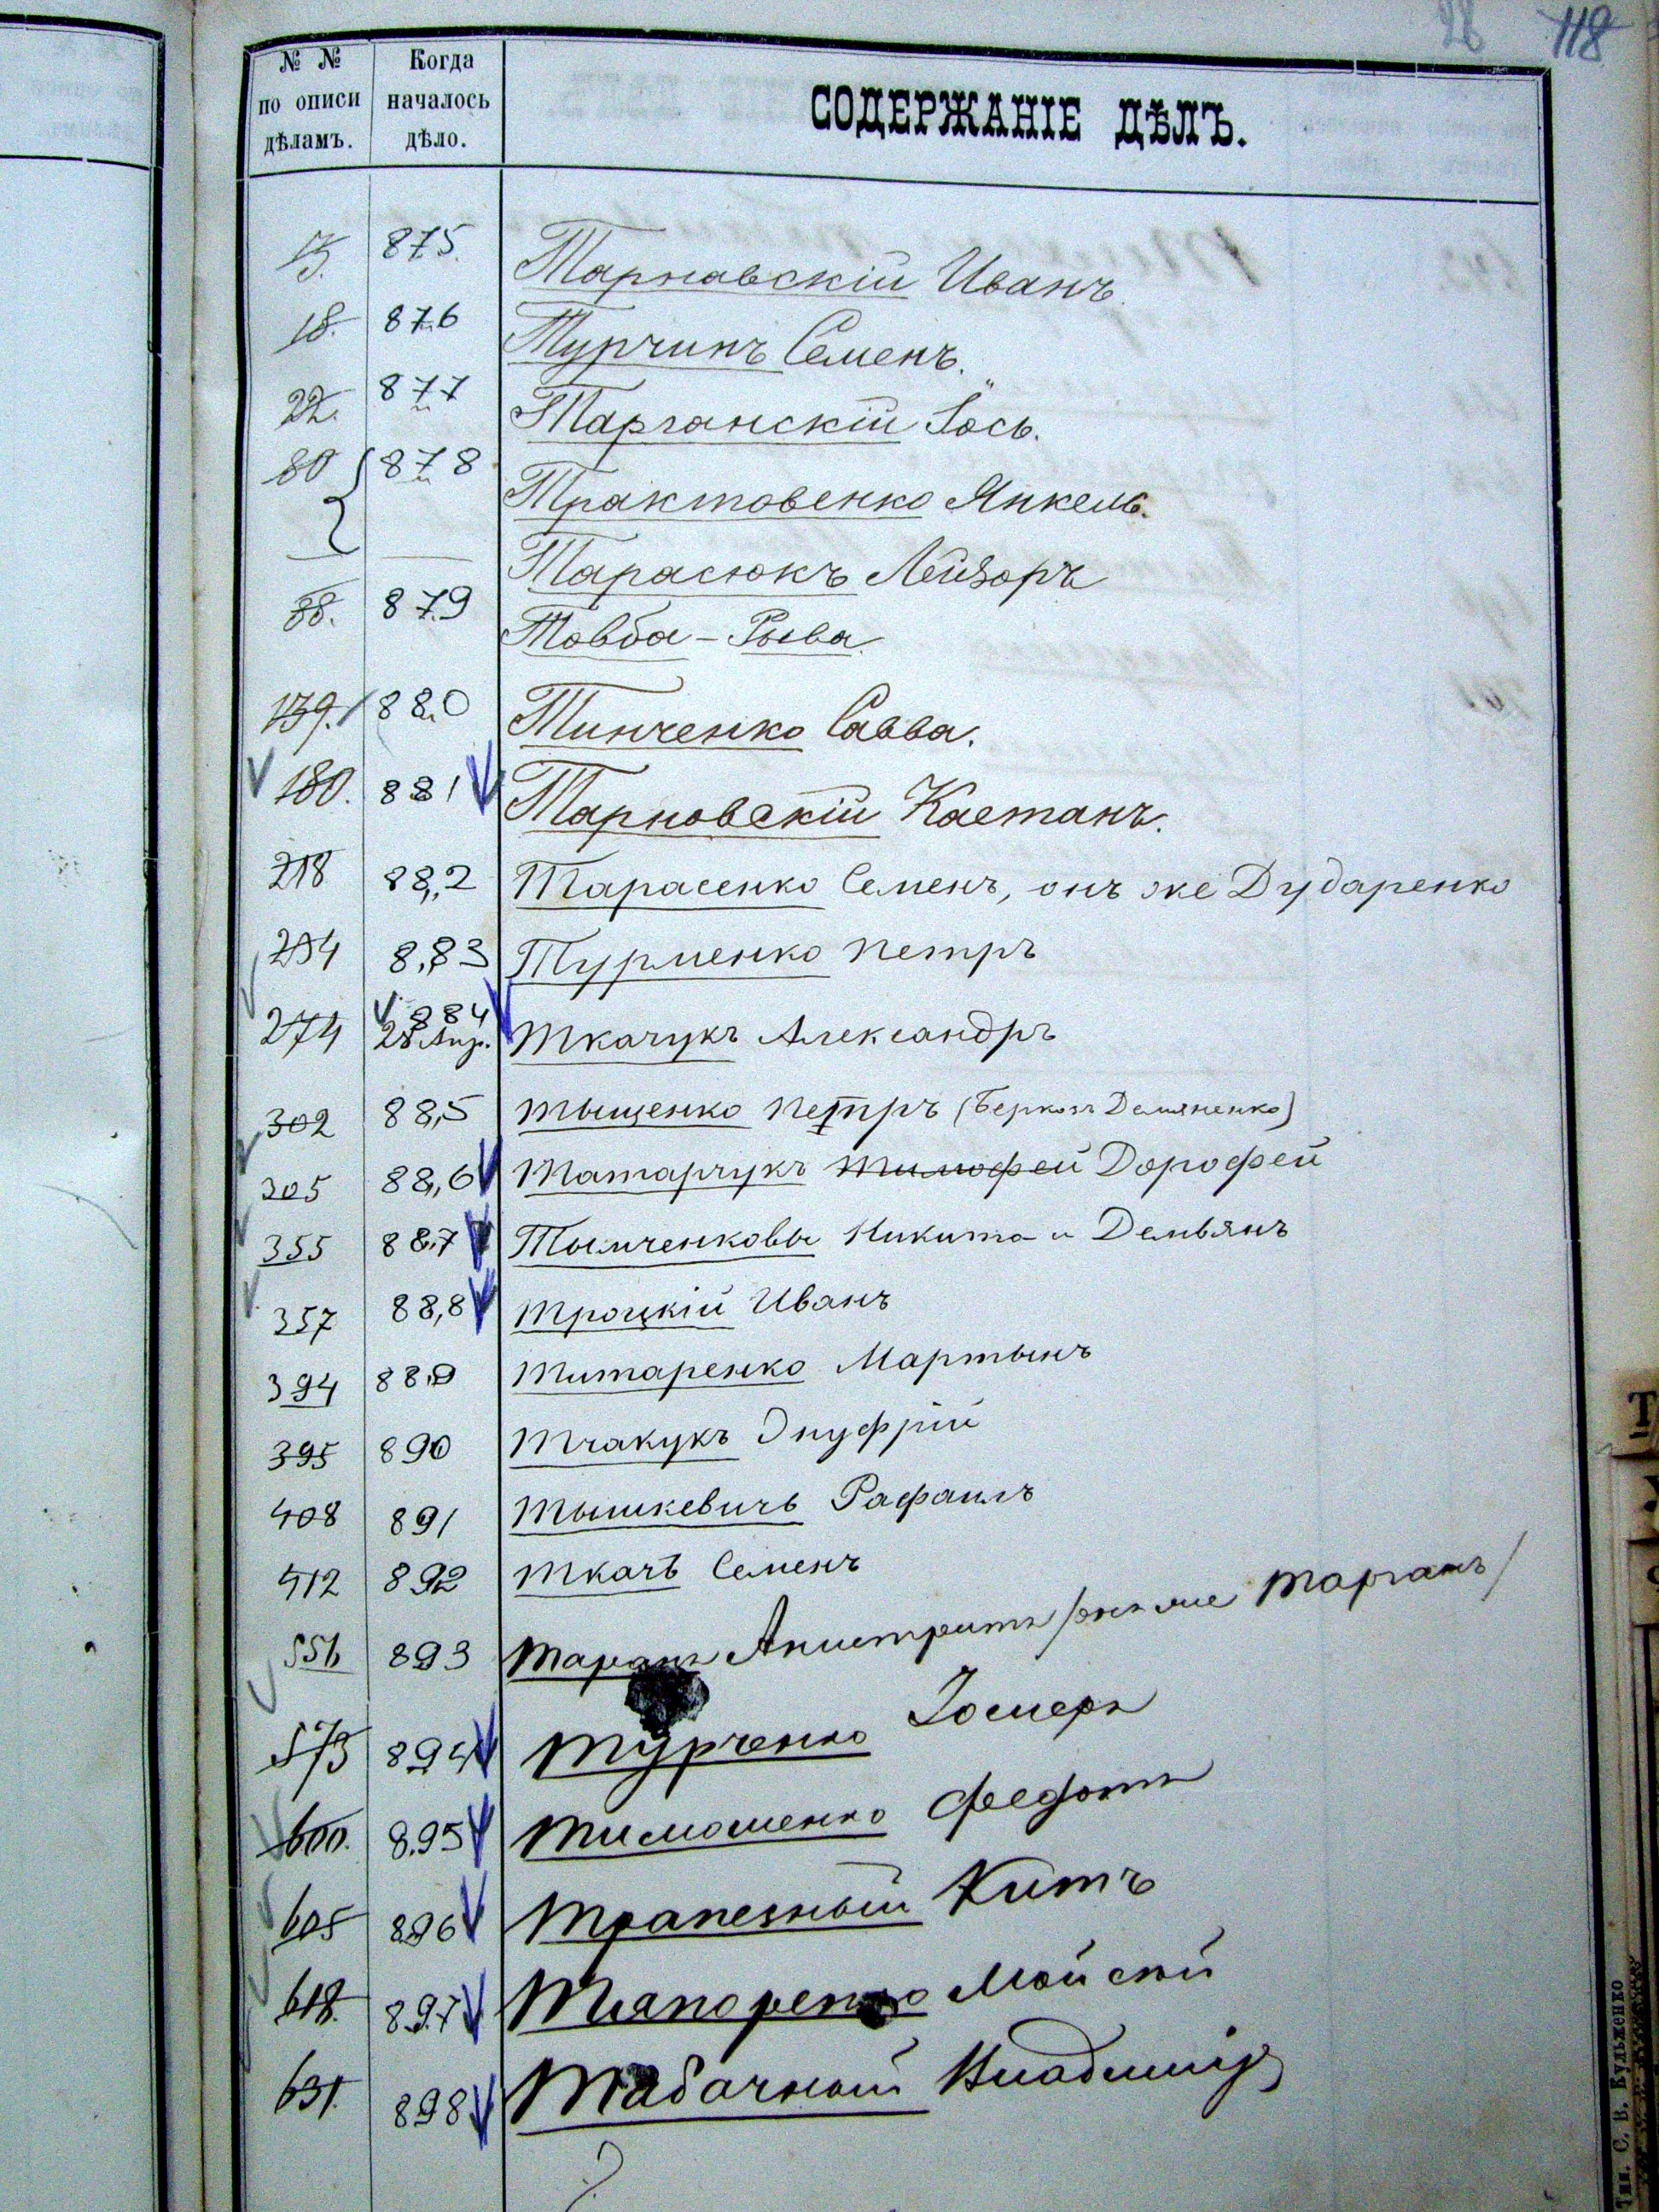 118
№ № по описи дѣламъ. Когда началось дѣло. СОДЕРЖАНІЕ ДѢЛЪ.
15. 875. Тарнавскій Иванъ.
18. 876 Турчинъ Семенъ.
22. 877 Тарганскій Іось.
80 878 Трактовенко Янкель.
Тарасюкъ Лейзоръ
88. 879 Товба-Рыва
139. 880 Тинченко Савва.
180. 881 Тарновскій Каетанъ.
218 882 Тарасенко Семенъ, онъ же Дударенко
234 883 Турменко Петръ
274 884 28 Апр. Ткачукъ Александръ
302 885 Тыщенко Петръ (Беркозъ Демяненко)
305 886 Татарчукъ Тимофей Дорофей
355 887 Тымченковы Никита и Демьянъ
357 888 Троцкій Иванъ
394 889 Титаренко Мартынъ
395 890 Тчакукъ Онуфрій
408 891 Тышкевичъ Рафаилъ
412 892 Ткачъ Семенъ
551 893 Таранъ /онъ же Тарганъ/
573 894 Турченко
600. 895 Тимошенко Федотъ
605 896 Трапезный Титъ
618. 897 Тяпоренко Мойсей
631. 898 Табачный Владиміръ
Тип. С. В. Кульженко